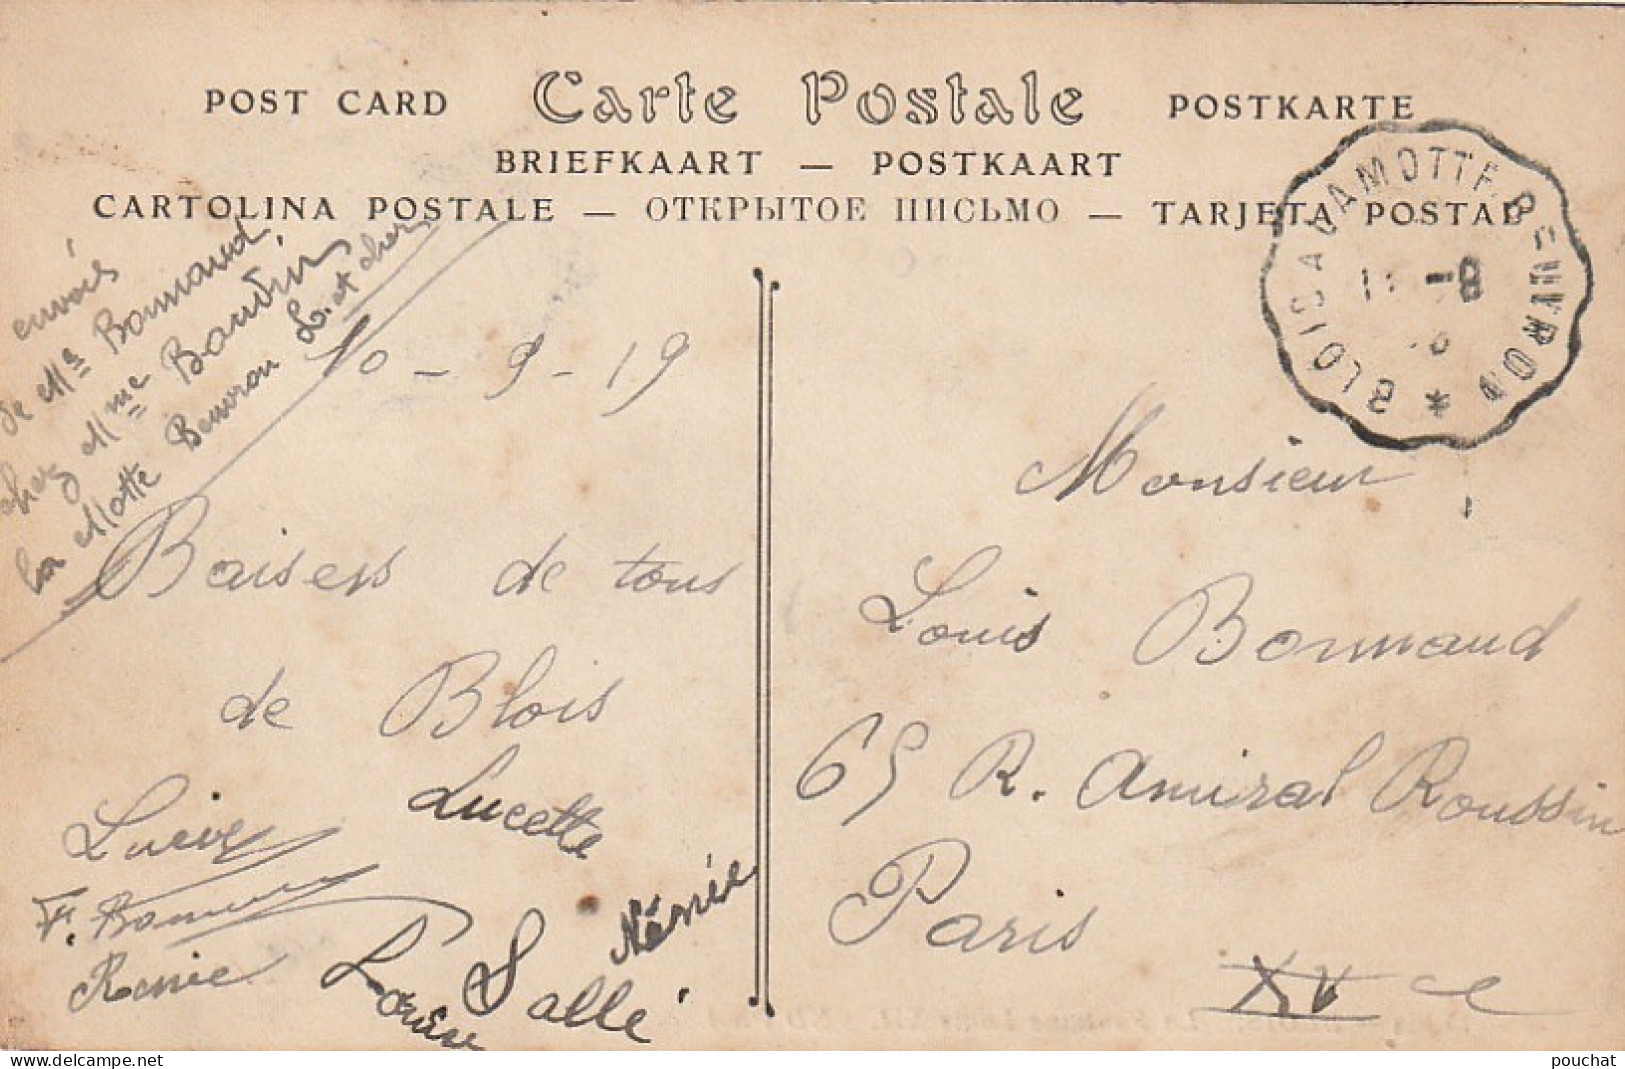 POST CARD Carte Postale POSTKARTE
BRIEFKAART — POSTKAART
CARTOLINA POSTALE — ОТКРЫТОЕ ПИСЬМО — TARJETA POSTAL
BLOIS A LAMOTTE BEUVRON *
11 -8
envois
de Mr Bonnaud
chez Mme Baudin
la Motte Beuvron L. et cher
10 - 9 - 19
Baisers de tous
de Blois
Lucette
Némie
F. Bonn
Renée
Louise Sallé
Monsieur
Louis Bonnaud
65 R. Amiral Roussin
Paris
XVce
pouchat